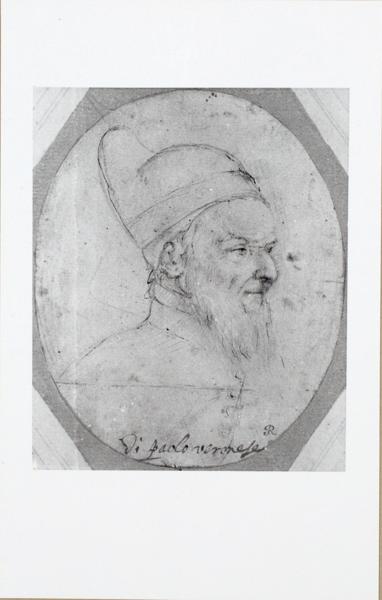 R
di paolo veronese